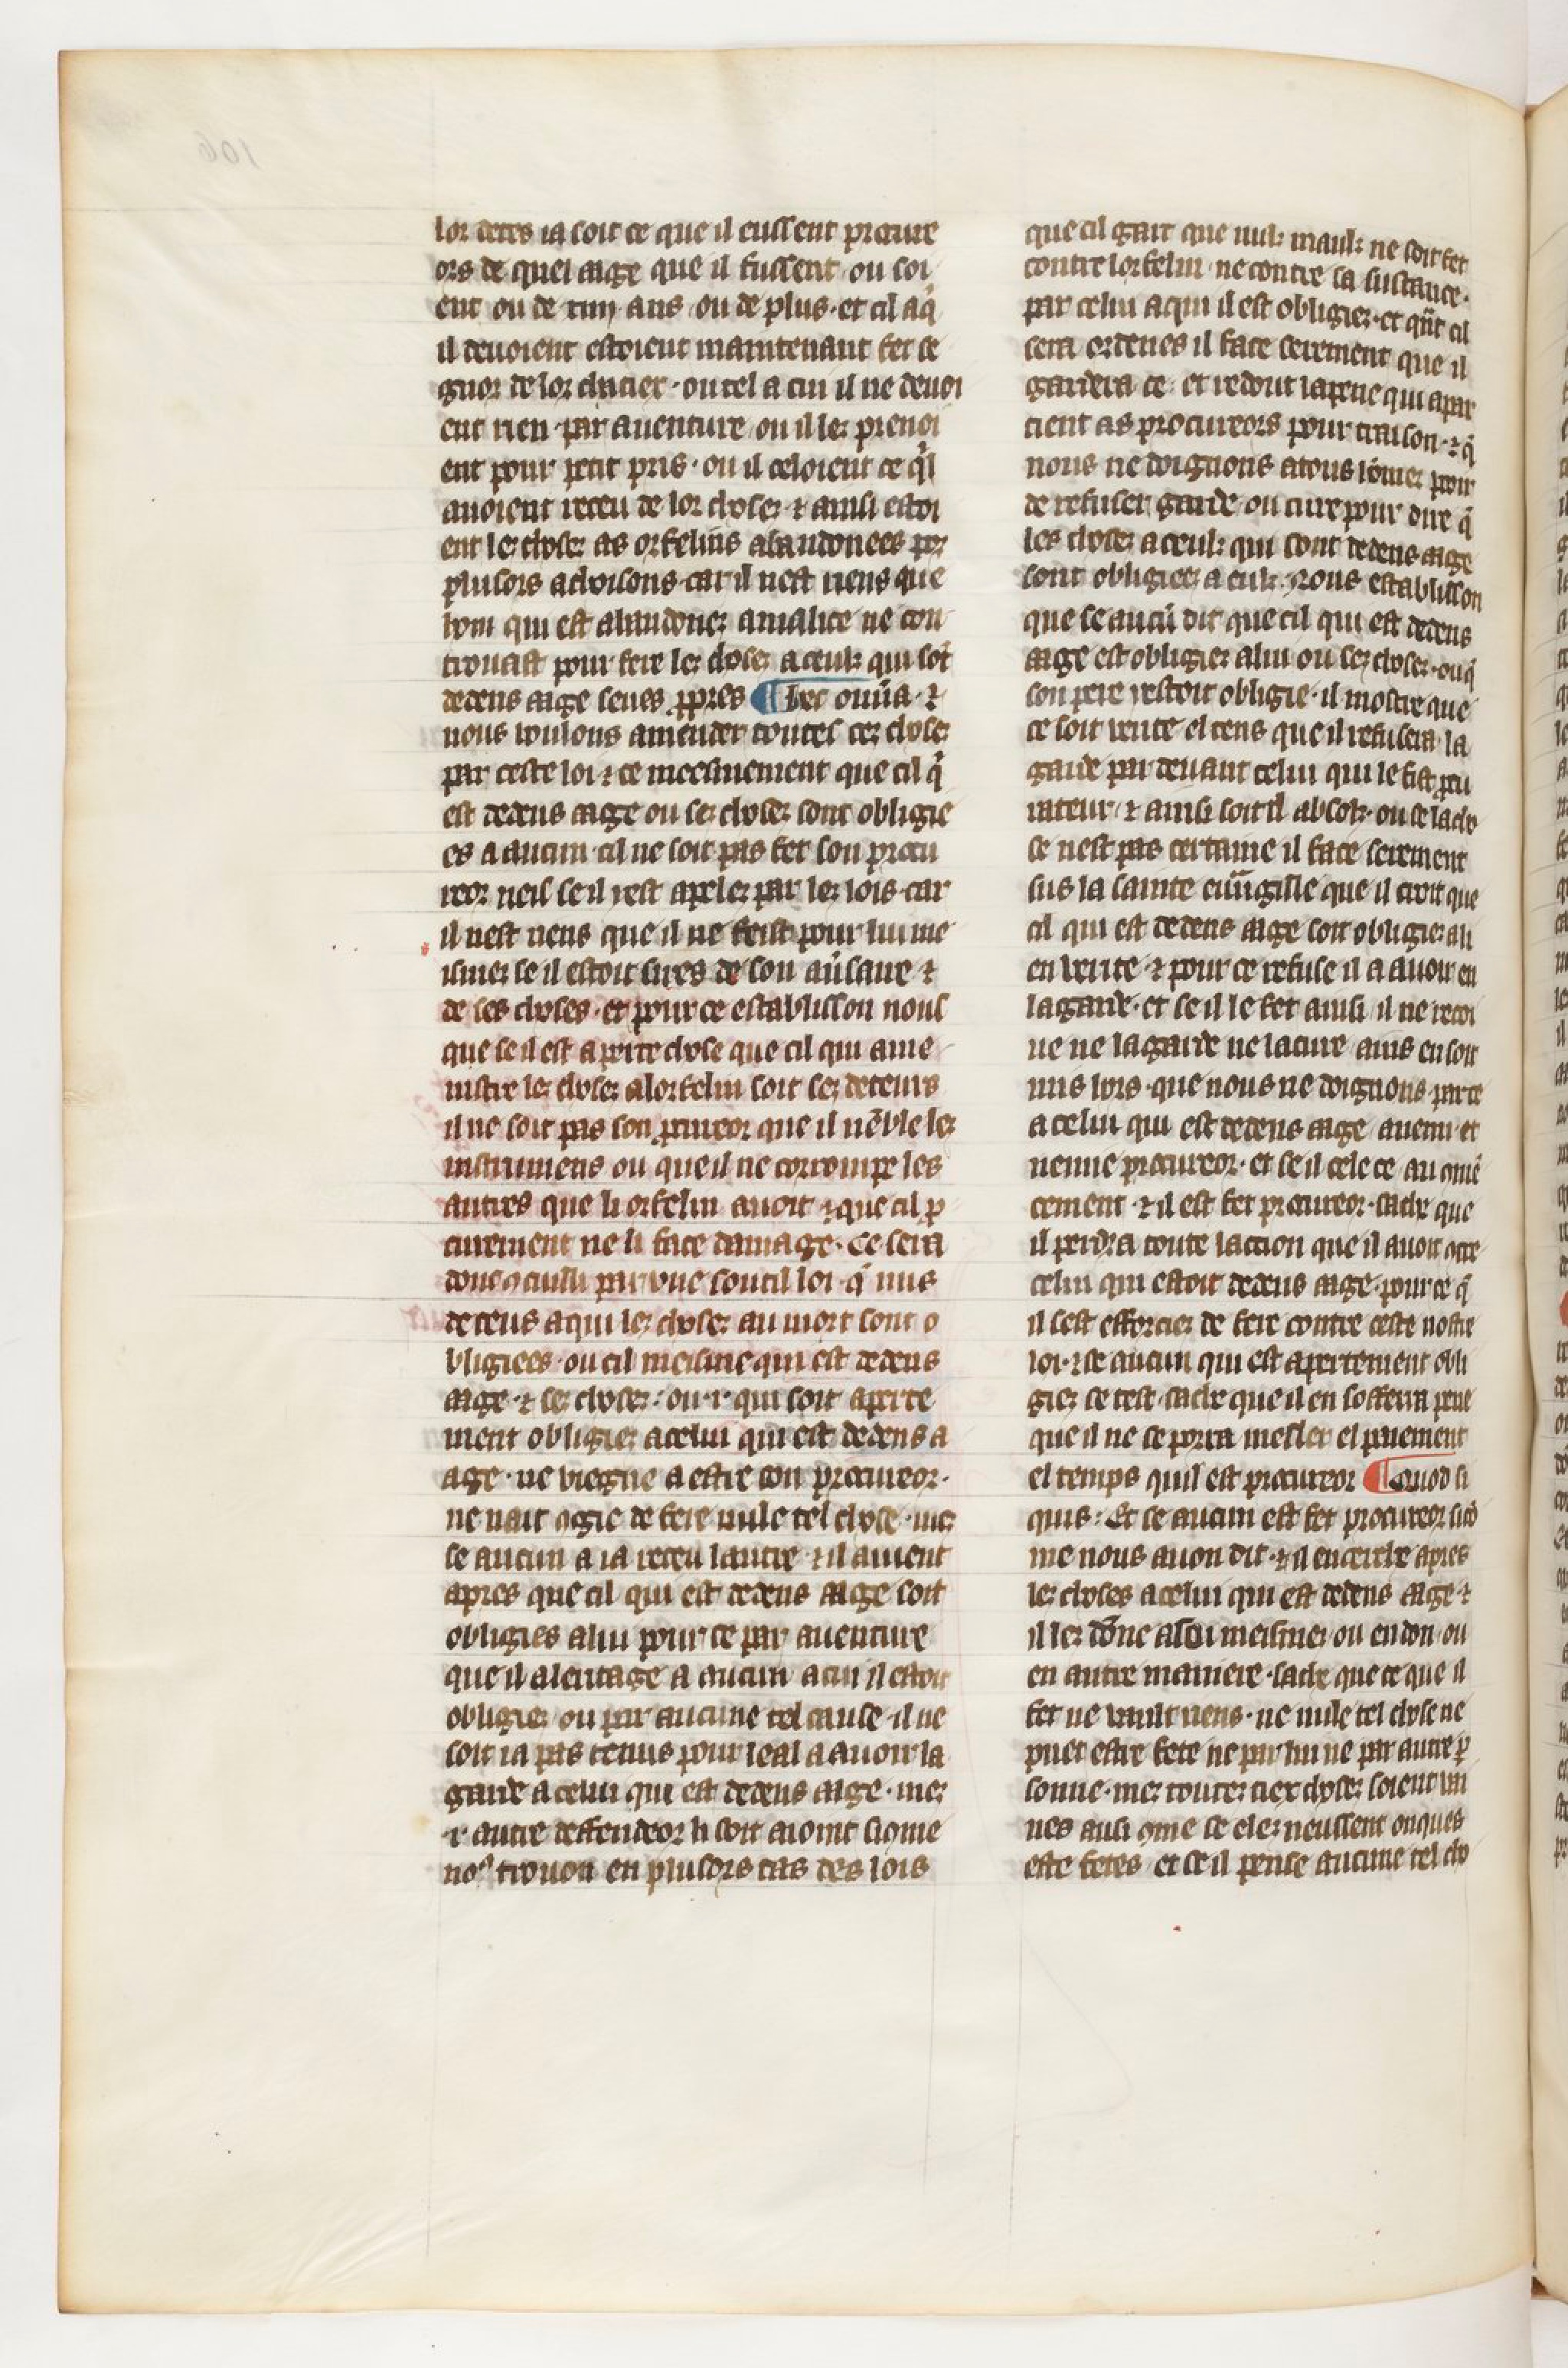 lor detes ia soit ce que il eussent procure
ors de quel aage que il fussent ou soi
ent ou de xiiij ans ou de plus · et cil a q̇
il deuoient estoient maintenant fet se
gnor de lor chatier · ou tel a cui il ne deuoi
ent rien par auenture ou il lez prenoi
ent pour petit pris · ou il celoient ce q̇l
auoient receu de lor chosez ⁊ ainsi estoi
ent lez chosez as orfelins abandonees por
plusors achoisons car il nest riens que
hom qui est abandonez a malice ne con
trouast pour fere lez chosez a ceulz qui sōt
dedens aage seues ꝓpres ¶ Hec om̄ia · ⁊
nous voulons amender toutes cez chosez
par ceste loi ⁊ ce meesmement que cil q̇
est dedens aage ou sez chosez sont obligie
es a aucun cil ne soit pas fet son procu
reor neis se il i est apelez par lez lois car
il nest riens que il ne feist pour lui me
ismez se il estoit sires de son au̓saire ⁊
de ses choses · et pour ce establisson nous
que se il est aperte chose que cil qui ame
nistre lez chosez a lorfelin soit sez deteurs
il ne soit pas son ꝓcureor que il nēble lez
instrumens ou que il ne corrompe les
autres que li orfelin auoit ⁊ que cil ꝑ
curement ne li face damage · Ce sera
donc ꝯcuilli par vne soutil loi q̇ nus
deteus a qui lez chosez au mort sont o
bligiees · ou cil meisme qui est dedens
aage · ⁊ sez chosez : ou · i · qui soit aperte
ment obligiez a celui qui est dedens a
age · ne viegne a estre son procureor ·
ne nait ꝯgie de fere nule tel chose · mez
se aucun a ia receu lautre ⁊ il auient
apres que cil qui est dedens aage soit
obligies a lui pour ce par auenture
que il a leritage a aucun a cui il estoit
obligiez ou par aucune tel cause il ne
soit ia pas tenus pour leal a auoir la
garde a celui qui est dedens aage · mez
· i · autre deffendeor li soit aioint si ꝯme
noꝰ trouon en plusors cas des lois
que cil gart que nulz maulz ne soit fet
contre lorfelin ne contre sa sustance ·
par celui a qui il est obligiez · et qn̄t cil
sera ordenes il face serement que il
gardera ce · et redout la peine qui apar
tient as procureors pour traison · ⁊ q̇
nous ne doignons a tous homez pooir
de refuser garde ou cure pour dire q̇
les chosez a ceulz qui sont dedens aage
sont obligieez a eulz : Nous establisson
que se aucū dit que cil qui est dedens
aage est obligiez a lui ou sez chosez · ou q̇
son pere i estoit obligie · il mostre que
ce soit verite el tens que il refusera la
garde par deuant celui qui le fist ꝓcu
rateur ⁊ ainsi soit il absolz · ou se la cho
se nest pas certaine il face serement
sus la sainte euu̅gille que il croit que
cil qui est dedens aage soit obligiez a li
en verite ⁊ pour ce refuse il a auoir en
la garde · et se il le fet ainsi il ne recoi
ue ne la garde ne la cure ains en soit
mis hors · que nous ne doignons par ce
a celui qui est dedens aage auenir et
uenue procureor · et se il cele ce au ꝯmē
cement · ⁊ il est fet procureor · sache que
il perdra toute laction que il auoit ꝯtre
celui qui estoit dedens aage · pour ce q̇
il sest efforciez de fere contre ceste nostre
loi · ⁊ se aucun qui est apertement obli
giez se test · sache que il en sofferra peine
que il ne se porra mesler el paiement
el temps quil est procureor ¶ Quod si
quis : Et se aucun est fet procureor si cō
me nous auon dit · ⁊ il encerche apres
lez choses a celui qui est dedens aage · ⁊
il lez dōne a soi meismez ou en don ou
en autre maniere · sache que ce que il
fet ne vault riens · ne nule tel chose ne
puet estre fete ne par lui ne par autre ꝑ
sonne · mez toutez ciex chosez soient vai
nes ausi ꝯme se elez neussent onques
este fetes et se il pense aucune tel cho